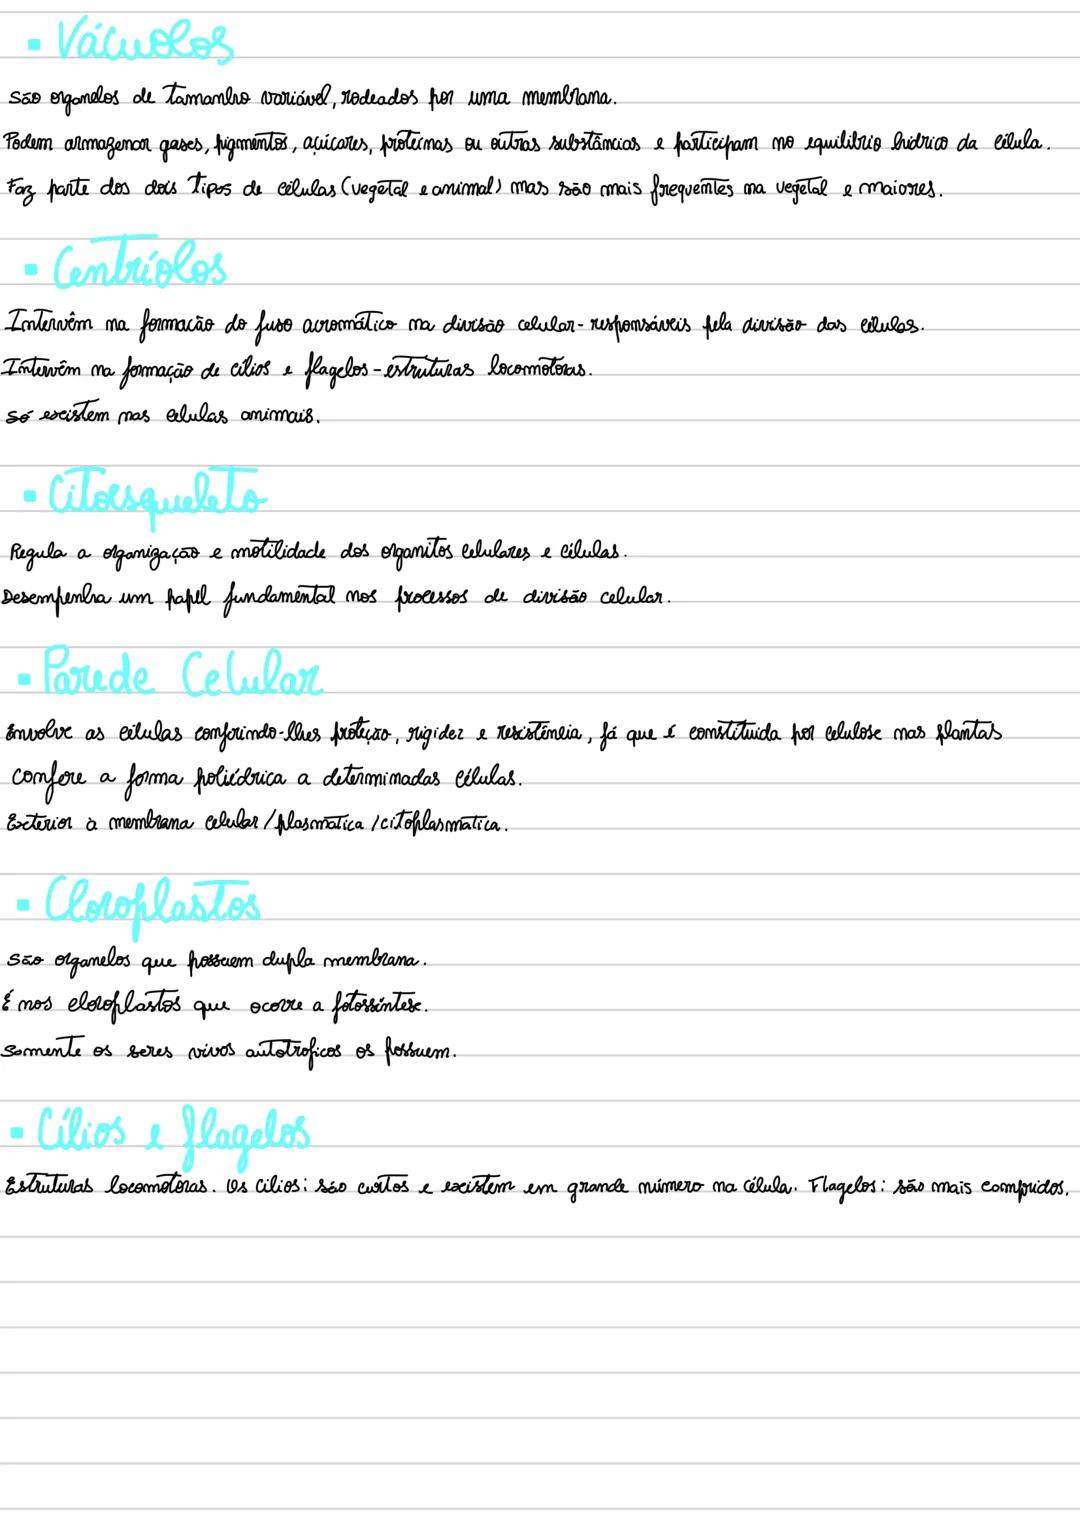 ▪ Vácuolos
São organelos de tamanho variável, rodeados por uma membrana.
Podem armazenar gases, pigmentos, açúcares, proteínas ou outras substâncias e participam no equilibrio hidrico da célula.
Faz parte dos dois tipos de células (vegetal e animal) mas são mais frequentes na vegetal e maiores.
▪ Centríolos
Intervêm na formação do fuso acromático na divisão celular - responsáveis pela divisão das células.
Intervêm na formação de cílios e flagelos - estruturas locomotoras.
Só existem nas celulas animais.
▪ Citoesqueleto
Regula a organização e motilidade dos organitos celulares e células.
Desempenha um papel fundamental nos processos de divisão celular.
▪ Parede Celular
Envolve as células conferindo-lhes proteção, rigidez e resistência, já que é constituida por celulose nas plantas
Confere a forma poliédrica a determinadas células.
Exterior à membrana celular / plasmatica / citoplasmatica.
▪ Cloroplastos
São organelos que possuem dupla membrana.
É nos cloroplastos que ocorre a fotossíntese.
Somente os seres vivos autotroficos os possuem.
▪ Cílios e flagelos
Estruturas locomotoras. Os cilios: são curtos e existem em grande número na célula. Flagelos: são mais compridos.